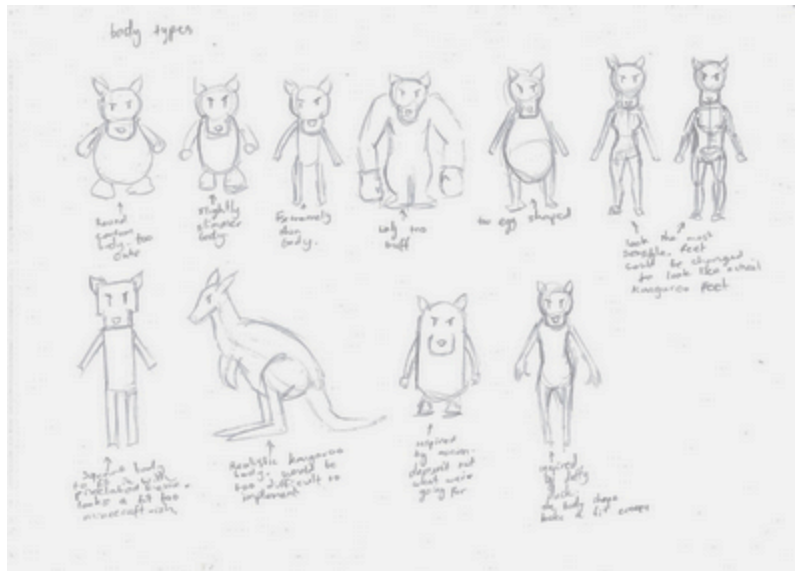 body types
Round
cartoon
body. too
cute
slightly
slimmer
body.
Extremely
thin
body.
way too
buff
too egg shaped
look the most
sensible. feet
could be changed
to look like actual
kangaroo feet
Square body
to fit in with
pixelated theme.
looks a bit too
minecraft-ish
Realistic kangaroo
body. would be
too difficult to
implement
inspired
by
not
what we're
going for
inspired
by daffy
duck.
body shape
looks a bit creepy